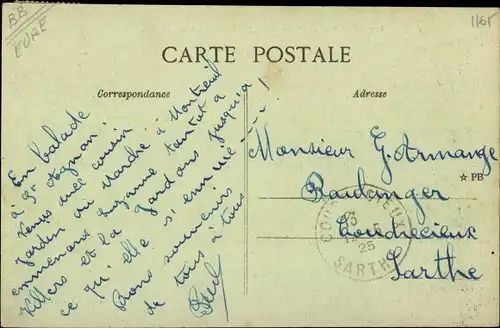 BB
EURE
1165
CARTE POSTALE
Correspondance
Adresse
En balade
à St Aignan.
Venus avec cousin
Jardin au Marché à Montreuil
emmenons Suzanne tantôt à
Villers et la gardons jusqu'à
ce qu'elle s'ennuie ----!
Bons souvenirs
de tous à tous
Monsieur G. Armange
Boulanger
Coudrecieux
Sarthe
☆ PB
COUDRECIEUX
25
SARTHE